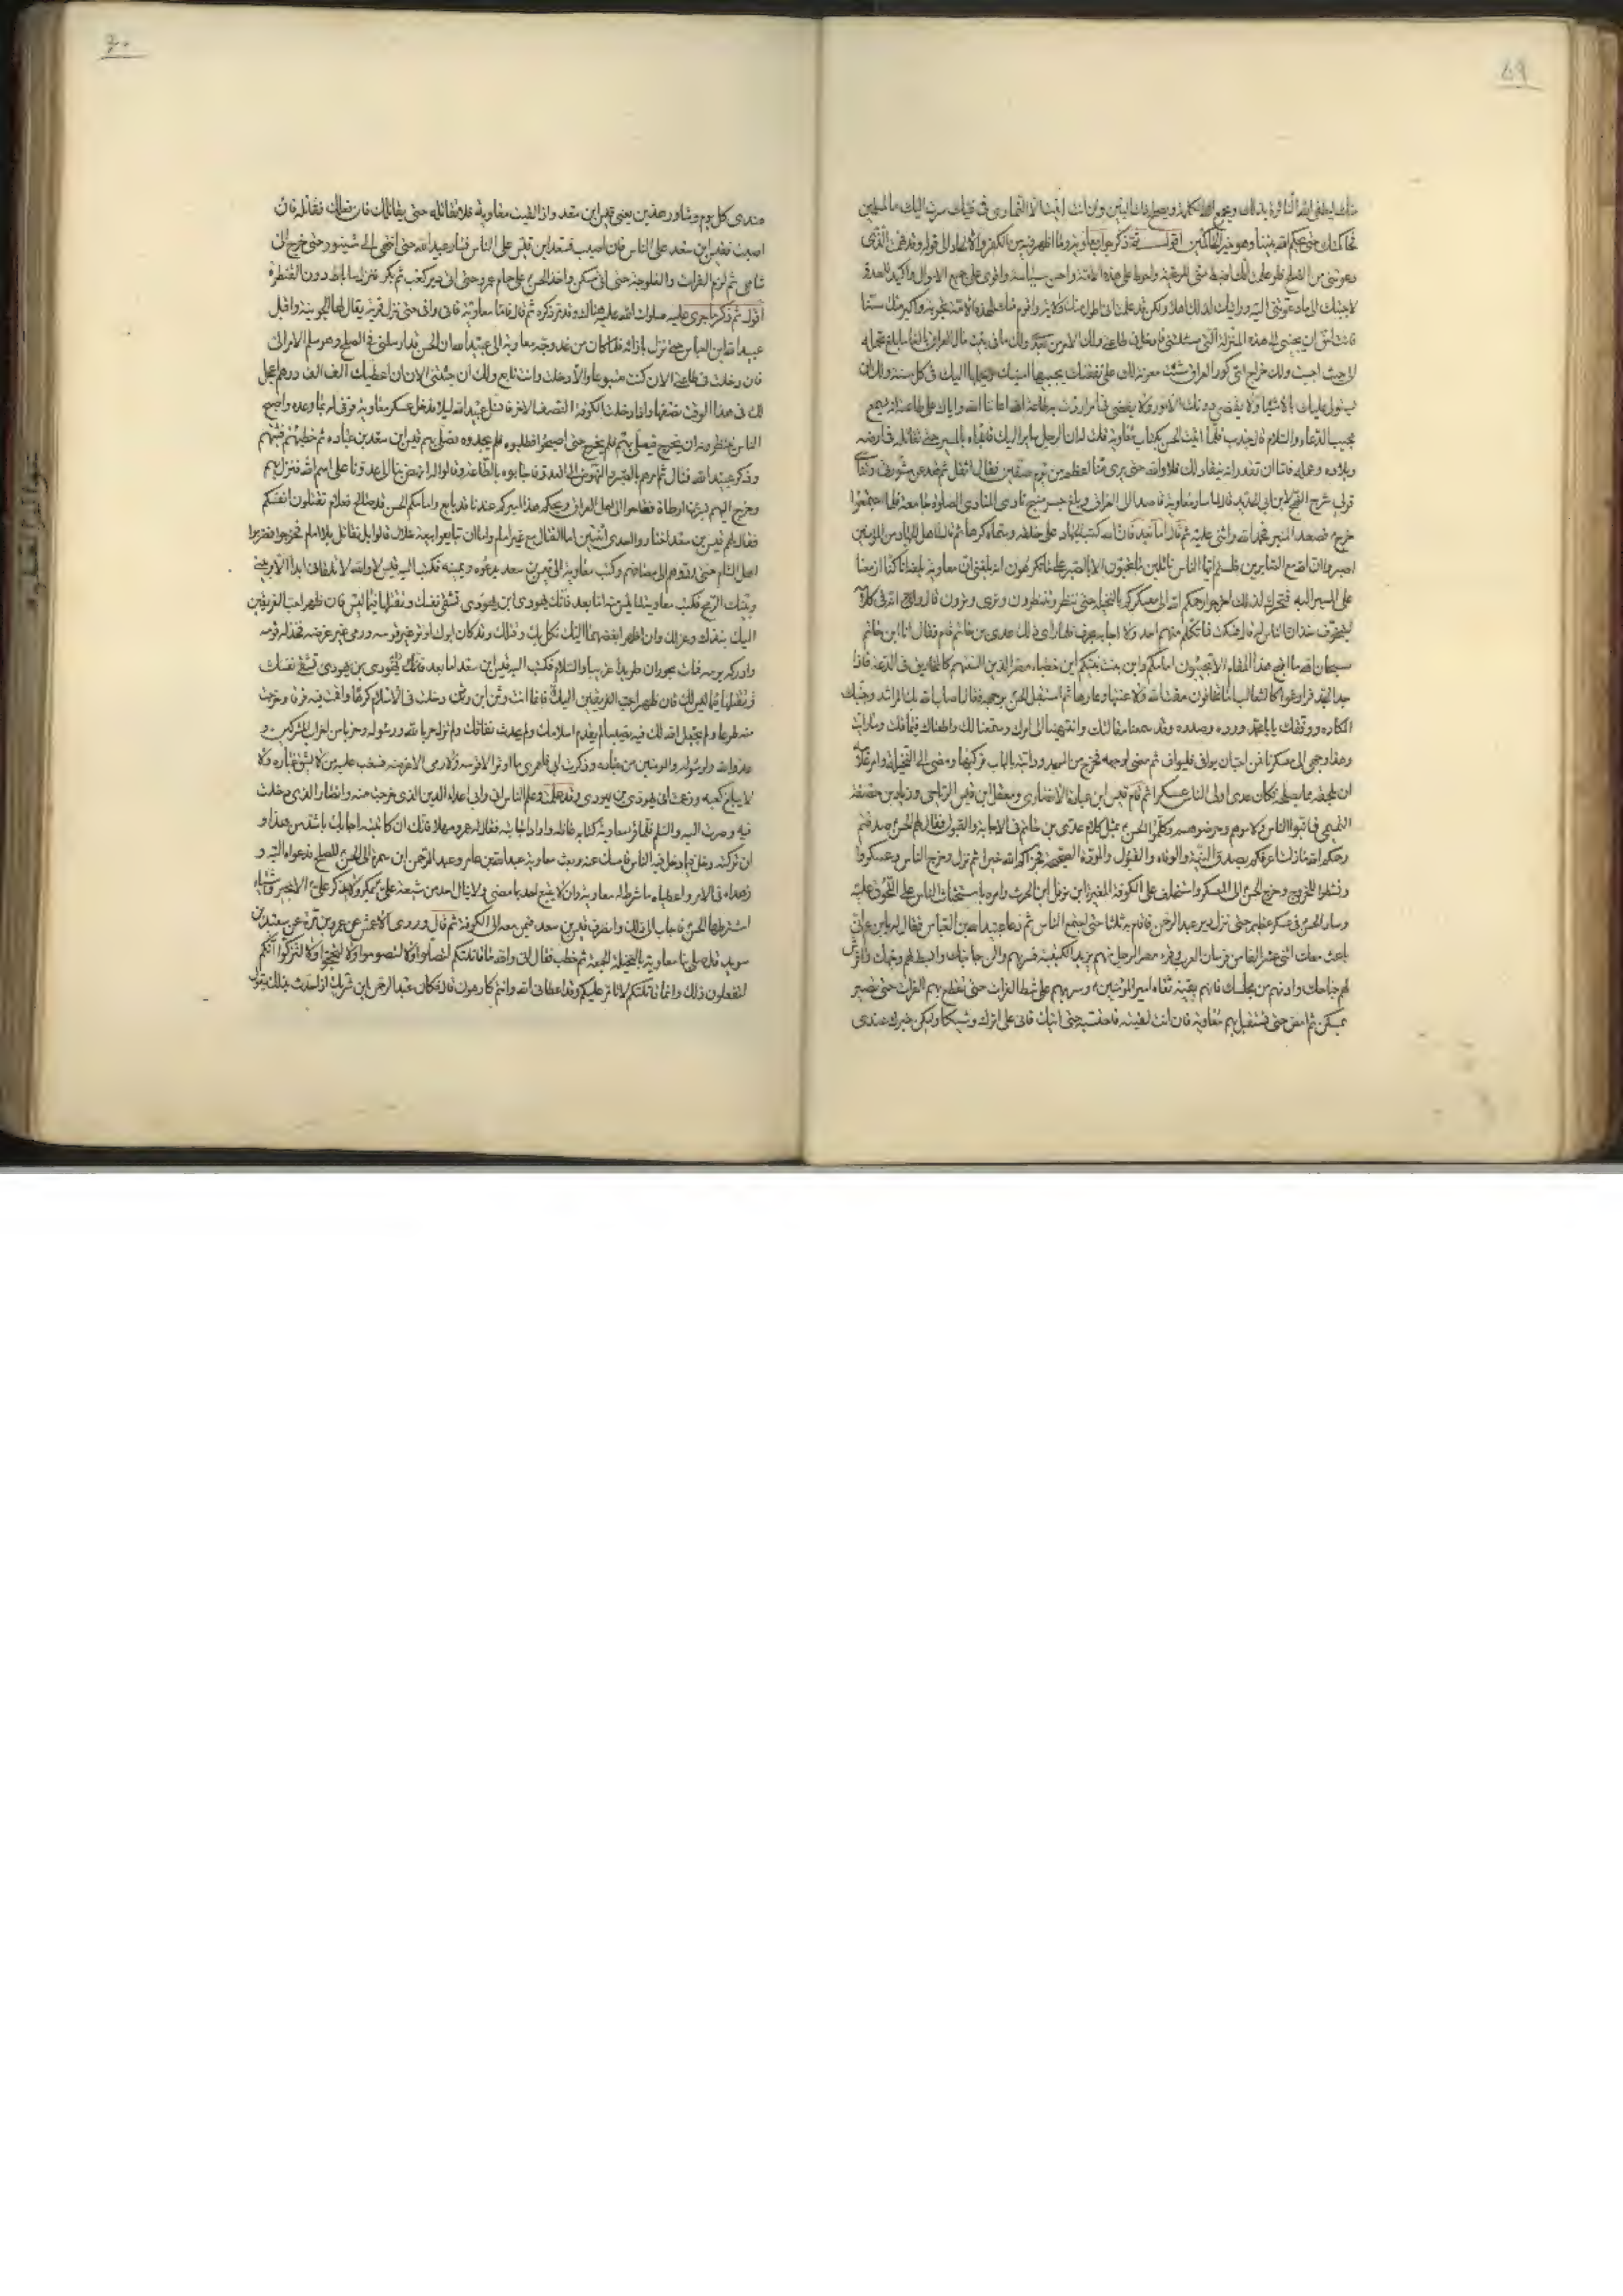 ٥٩
منك ليطفئ الله النائرة بذلك ويجمع الكلمة ويصلح ذات البين وان انت ابيت الا التمادى فى غيك سرت اليك بالمسلمين
فحاكمتك حتى يحكم الله بيننا وهو خير الحاكمين اقول ثم ذكر جواب معاوية وما اظهر فيه من الكفر والالحاد الى قوله وقد فهمت الذى
دعوتنى من الصلح فلو علمت انك اضبط منى للرعية واحوط على هذه الامة واحسن سياسة واقوى على جمع الاموال واكيد للعدو
لاجبتك الى ما دعوتنى اليه ورايتك لذلك اهلا ولكن قد علمت انى اطول منك ولاية واقدم منك لهذه الامة تجربة واكبر منك سنا
فانت احق ان تجيبنى الى هذه المنزلة التى سئلتنى فادخل فى طاعتى ولك الامر من بعدى ولك ما فى بيت مال العراق بالغا ما بلغ تحمله
الى حيث احببت ولك خراج اى كور العراق شئت معونة لك على نفقتك يجبيها امينك ويحملها اليك فى كل سنة ولك ان
لا يستولى عليك بالاشياء ولا يقضى دونك الامور ولا يعصى فى امر اردت به طاعة الله اعاننا الله واياك على طاعته انه سميع
مجيب الدعاء والسلام قال جندب فلما اتيت الحسن بكتاب معاوية قلت له ان الرجل سائر اليك فابدأه بالمسير حتى تقاتله فى ارضه
وبلاده وعمله فاما ان تقدر انه ينقاد لك فلا والله حتى يرى منا اعظم من يوم صفين فقال افعل ثم قعد عن مشورتى وتناسى
قولى شرح النهج لابن ابى الحديد قال وسار معاوية قاصدا الى العراق وبلغ جسر منبج نادى المنادى الصلوة جامعة فلما اجتمعوا
خرج فصعد المنبر فحمد الله واثنى عليه ثم قال اما بعد فان الله كتب الجهاد على خلقه وسماه كرها ثم قال لاهل الجهاد من المؤمنين
اصبروا ان الله مع الصابرين فلستم ايها الناس نائلين ما تحبون الا بالصبر على ما تكرهون انه بلغنى ان معاوية بلغه انا كنا ازمعنا
على المسير اليه فتحرك لذلك اخرجوا رحمكم الله الى معسكركم بالنخيلة حتى ننظر وتنظرون ونرى وترون قال وانه فى كلامه
ليتخوف خذلان الناس له قال فسكتوا فما تكلم منهم احد ولا اجابه بحرف فلما راى ذلك عدى بن حاتم قام فقال انا ابن حاتم
سبحان الله ما اقبح هذا المقام الا تجيبون امامكم وابن بنت نبيكم اين خطباء مضر الذين السنتهم كالمخاريق فى الدعة فاذا
جد الجد فرواغون كالثعالب اما تخافون مقت الله ولا عيبها وعارها ثم استقبل الحسن بوجهه فقال اصاب الله بك المراشد وجنبك
المكاره ووفقك لما يحمد ورده وصدره وقد سمعنا مقالتك وانتهينا الى امرك وسمعنا لك واطعناك فيما قلت ورايت
وهذا وجهى الى معسكرنا فمن احب ان يوافى فليواف ثم مضى لوجهه فخرج من المسجد ودابته بالباب فركبها ومضى الى النخيلة وامر غلامه
ان يلحقه بما يصلحه فكان عدى اول الناس عسكرا ثم قام قيس ابن عبادة الانصارى ومعقل ابن قيس الرياحى وزياد بن خصفة
التيمى فانبوا الناس ولاموهم وحرضوهم وكلموا الحسن بمثل كلام عدى بن حاتم فى الاجابة والقبول فقال لهم الحسن صدقتم
رحمكم الله ما زلت اعرفكم بصدق النية والوفاء والقبول والمودة الصحيحة فجزاكم الله خيرا ثم نزل وخرج الناس وعسكروا
ونشطوا للخروج وخرج الحسن الى المعسكر واستخلف على الكوفة المغيرة ابن نوفل ابن الحرث وامره باستحثاث الناس على اللحوق عليه
وسار الحسن فى عسكر عظيم حتى نزل دير عبد الرحمن فاقام به ثلثا حتى اجتمع الناس ثم دعا عبيد الله بن العباس فقال له يا بن عم انى
باعث معك اثنى عشر الفا من فرسان العرب وقراء مصر الرجل منهم يزيد الكتيبة فسر بهم والن جانبك وابسط لهم وجهك وافرش
لهم جناحك وادنهم من مجلسك فانهم بقية ثقاة امير المؤمنين وسر بهم على شط الفرات حتى تقطع بهم الفرات حتى تصير
بمسكن ثم امض حتى تستقبل بهم معاوية فان انت لقيته فاحتسبه حتى اتيك فانى على اثرك وشيكا وليكن خبرك عندى
٦٠
عندى كل يوم وشاور هذين يعنى قيس ابن سعد واذا لقيت معاوية فلا تقاتله حتى يقاتلك فان فعل فقاتله فان
اصبت فقيس ابن سعد على الناس فان اصيب فسعد ابن قيس على الناس فسار عبيد الله حتى انتهى الى شينور حتى خرج الى
شاهى ثم لزم الفرات والفلوجة حتى اتى مسكن واخذ الحسن على حمام عمرو حتى اتى دير كعب ثم بكر فنزل ساباط دون القنطرة
اقول ثم ذكر ما جرى عليه صلوات الله عليه هنالك وقد مر ذكره ثم قال فاما معاوية فانه وافى حتى نزل قرية يقال لها الحبوبية واقبل
عبيد الله ابن العباس حتى نزل بازائه فلما كان من غد وجه معاوية الى عبيد الله ان الحسن قد ارسلنى فى الصلح وهو مسلم الامر الى
فان دخلت فى طاعتى الان كنت متبوعا والا دخلت وانت تابع ولك ان جئتنى الان ان اعطيك الف الف درهم اعجل
لك فى هذا الوقت نصفها واذا دخلت الكوفة النصف الاخر فانسل عبيد الله ليلا فدخل عسكر معاوية فوفى له بما وعده واصبح
الناس ينتظرونه ان يخرج فيصلى بهم فلم يخرج حتى اصبحوا فطلبوه فلم يجدوه فصلى بهم قيس ابن سعد بن عباده ثم خطبهم فثبتهم
وذكر عبيد الله فنال منه ثم امرهم بالصبر والنهوض الى العدو فاجابوه بالطاعة وقالوا له انهض بنا الى عدونا على اسم الله فنزل بهم
وخرج اليهم بسر بن ارطاة فصاحوا الى اهل العراق ويحكم هذا اميركم عندنا قد بايع وامامكم الحسن قد صالح فعلام تقتلون انفسكم
فقال لهم قيس بن سعد اختاروا احدى اثنتين اما القتال مع غير امام واما ان تبايعوا بيعة ضلال قالوا بل نقاتل بلا امام فخرجوا فضربوا
اهل الشام حتى ردوهم الى مصافهم وكتب معاوية الى قيس بن سعد يدعوه ويمنيه فكتب اليه قيس لا والله لا تلقانى ابدا الا بينى
وبينك الرمح فكتب معاوية اما بعد فانك يهودى ابن يهودى تشقى نفسك وتقتلها فيما ليس لك فان ظهر احب الفريقين
اليك نبذك وعزلك وان ظهر ابغضهما اليك نكل بك وقتلك وقد كان ابوك اوتر غير قوسه ورمى غير غرضه فخذله قومه
وادركه يومه فمات بحوران طريدا غريبا والسلام فكتب اليه قيس ابن سعد اما بعد
فانما انت وثن ابن وثن دخلت فى الاسلام كرها واقمت فيه فرقا وخرجت
منه طوعا ولم يجعل الله لك فيه نصيبا لم يقدم اسلامك ولم يحدث نفاقك ولم تزل حربا لله ورسوله وحزبا من احزاب المشركين و
عدوا لله ولرسوله والمؤمنين من عباده وذكرت ابى فلعمرى ما اوتر الا قوسه ولا رمى الا غرضه فشغب عليه من لا يشق غباره ولا
لا يبلغ كعبه وزعمت انى يهودى بن يهودى وقد علمت وعلم الناس انى وابى اعداء الدين الذى خرجت منه وانصار الذى دخلت
فيه وصرت اليه والسلم فلما قرء معاوية كتابه غاظه واراد اجابته فقال له عمرو مهلا فانك ان كاتبته اجابك باشد من هذا و
ان تركته دخل فيما دخل فيه الناس فامسك عنه وبعث معاوية عبد الله بن عامر وعبد الرحمن ابن سمرة الى الحسن للصلح فدعواه اليه و
زهداه فى الامر واعطياه ما شرط له معاوية وان لا يتبع احد بما مضى ولا ينال احد من شيعة على بمكروه ولا يذكر على الا بخير واشياء
اشترطها الحسن فاجاب الى ذلك وانصرف قيس بن سعد فيمن معه الى الكوفة ثم قال وروى الاعمش عن عمرو بن مرة عن سعيد بن
سويد قال صلى بنا معاوية بالنخيلة الجمعة ثم خطب فقال انى والله ما قاتلتكم لتصلوا ولا لتصوموا ولا لتحجوا ولا لتزكوا انكم
لتفعلون ذلك وانما قاتلتكم لاتامر عليكم وقد اعطانى الله وانتم كارهون قال فكان عبد الرحمن ابن شريك اذا حدث بذلك يقول